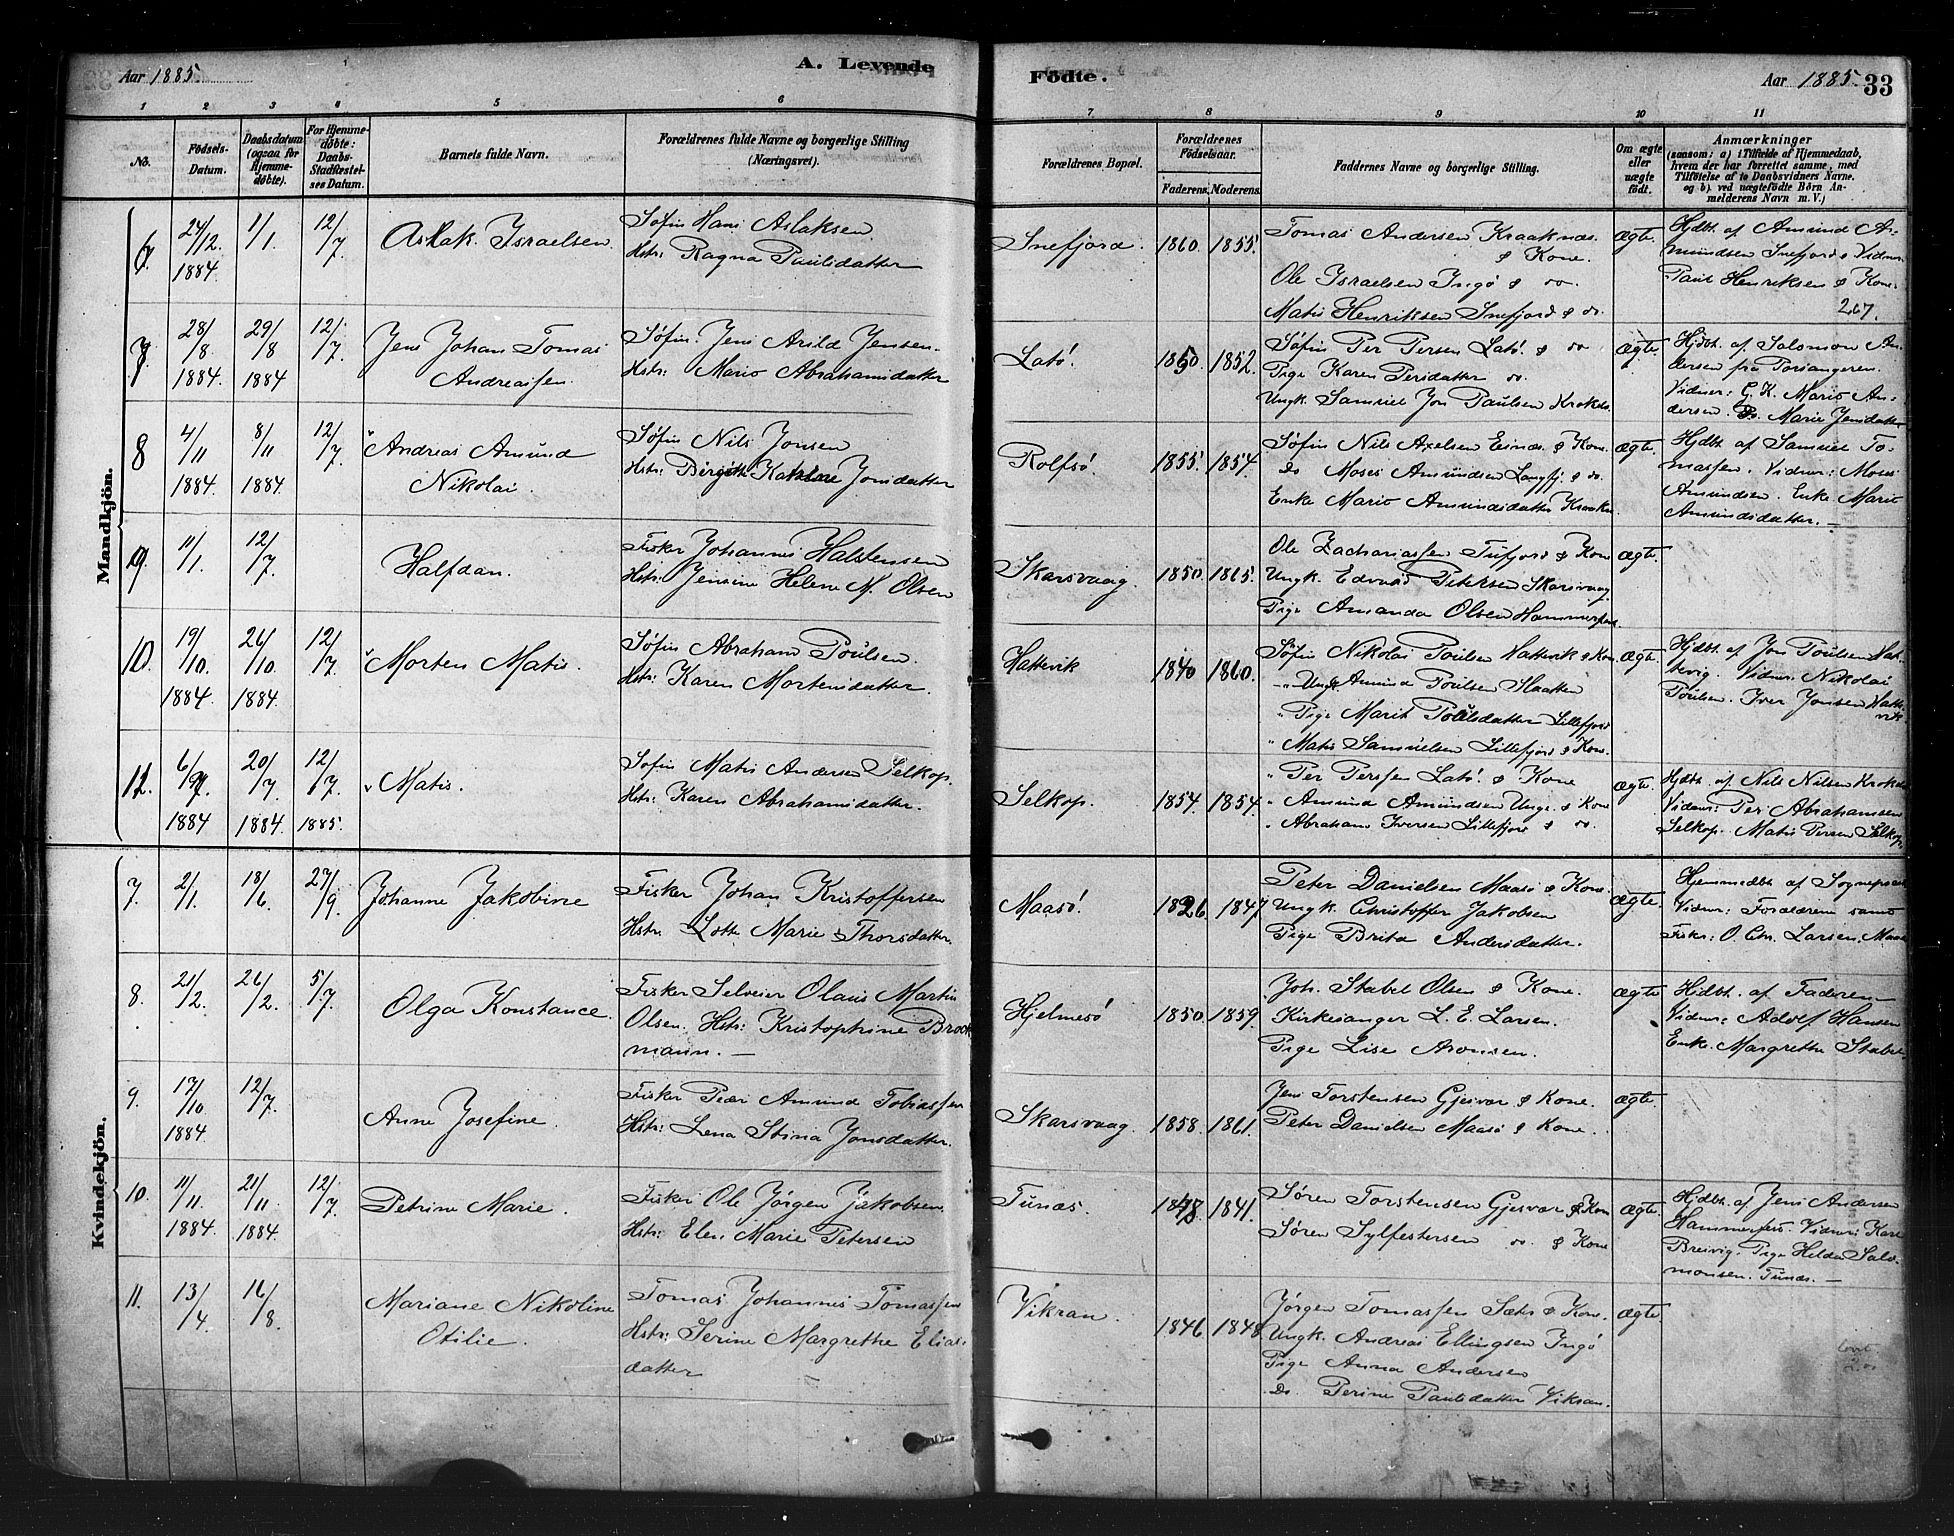 Aar 1885.
A. Levende
Födte.
Aar 1885.
33
1 2 3 4 5 6 7 8 9 10 11
No.
Födsels-Datum.
Daabsdatum (ogsaa for Hjemmedöbte).
For Hjemmedöbte: Daabs-Stadfæstelses Datum.
Barnets fulde Navn.
Forældrenes fulde Navne og borgerlige Stilling (Næringsvei).
Forældrenes Bopæl.
Forældrenes Födselsaar.
Faderens. Moderens.
Faddernes Navne og borgerlige Stilling.
Om ægte eller uægte födt.
Anmærkninger
(saasom: a) i Tilfælde af Hjemmedaab, hvem der har forrettet samme, med Tilföielse af to Daabsvidners Navne, og b) ved uægtefödte Börn Anmelderens Navn m. V.)
Mandkjön.
6. 24/12 1884 1/1 12/7 Aslak Israelsen.
Søfin Hans Aslaksen.
Hstr: Ragna Paulsdatter
Snefjord. 1860. 1855.
Tomas Andersen Kraaknæs. & Kone.
Ole Israelsen Ingø & do.
Matis Henriksen Snefjord & do.
ægte.
Hjdbt. af Amund Amundsen Snefjord & Vidner.
Paul Henriksen & Kone.
267.
7. 28/8 1884 29/8 1884 12/7 Jens Johan Tomas
Andreassen.
Søfin. Jens Arild Jensen.
Hstr: Marit Abrahamsdatter
Latø. 1850. 1852.
Søfin Per Persen Latø. & do.
Pige Karen Persdatter do.
Ungk. Samuel Jon Paulsen Krokel.
ægte.
Hjdbt. af Salomon Andersen fra Porsangeren.
Vidner: G. K. Marit Andersen. Ps. Marie Jensdatter
8 4/11 1884. 8/11 1884. 12/7 Andreas Amund
Nikolai.
Søfin Nils Jonsen
Hstr: Birgitte Katrine Jonsdatter
Rolfsø. 1855. 1854.
Søfin Nils Axelsen Einæs. & Kone.
Do Moses Amundsen Langfj. & do.
Enke Marit Amundsdatter Kraaken
ægte.
Hjdbt. af Samuel Tomassen. Vidner: Moses
Amundsen. Enke Marit
Amundsdatter. —
9. 11/1. 12/7. Halfdan.
Fisker Johannes Halstensen
Hstr: Jensine Helene M. Olsen
Skarsvaag. 1850. 1865.
Ole Zachariassen Tufjord & Kone
Ungk. Edvard Petersen Skarsvaag.
Pige Amanda Olsen Hammerfest.
ægte.
10. 19/10. 1884. 26/10. 1884. 12/7. Morten Matis.
Søfin Abraham Poulsen.
Hstr: Karen Mortensdatter.
Hattevik 1840 1860.
Søfin Nikolai Poulsen Hattevik & Kone.
" Ungk Amund Poulsen Slaatten
" Pige Marit Poulsdatter Lillefjord
" Matis Samuelsen Lillefjord & Kone.
ægte.
Hjdbt. af Jon Poulsen Hattevig. Vidner: Nikolai
Poulsen. Iver Jonsen Hattevik.
12. 1884 20/7 1884. 12/7. 1885. Matis.
Søfin Matis Andersen Selkop.
Hstr: Karen Abrahamsdatter.
Selkop. 1854. 1854.
" Per Perssen Latø. & Kone
" Amund Amundsen Unge. & Kone
" Abraham Iversen Lillefjord & do.
ægte.
Hjdbt. af Nils Nilsen Krokel
Vidner: Per Abrahamsen
Selkop. Matis Persen Selkop
Kvindekjön.
7. 2/1. 18/6. 27/9. Johanne Jakobine
Fisker Johan Kristoffersen
Hstr: Lotte Marie Thorsdatter.
Maasø. 1826. 1847
Peter Danielsen Maasø & Kone.
Ungk. Christoffer Jakobsen
Pige Brita Andersdatter.
ægte.
Hjemmedbt. af Sognepræst
Vidner: Forældrene samt
Fisker: O. Chr. Larsen. Maasø
8. 21/2. 26/2. 5/7. Olga Konstance.
Fisker Selveier Olaus Martin
Olsen. Hstr: Kristophine Brochmann. —
Hjelmesø 1850. 1859.
Joh. Stabel Olsen & Kone.
Kirkesanger L. E. Larsen.
Pige Lise Aronsen.
ægte
Hjdbt. af Faderen—
Vidner: Adolf Hansen
Enke. Margrethe Stabel.
9. 17/10 1884. 12/7. Anne Josefine.
Fisker Peder Amund Tobiassen
Hstr: Lena Stina Jonsdatter.
Skarsvaag. 1858. 1861.
Jens Torstensen Gjesvær & Kone.
Peter Danielsen Maasø & Kone.
ægte.
10. 11/11. 1884 21/11 1884. 12/7 Petrine Marie.
Fisker Ole Jørgen Jakobsen.
Hstr: Elen Marie Petersen
Tunæs. 1848. 1841.
Søren Torstensen Gjesvær & Kone
Søren Sylfestersen do. & Kone
ægte.
Hjdbt. af Jens Andersen
Hammerfest. Vidner: Kare
Breivig. Pige Helda Salomonsen. Tunæs. —
11. 13/4 16/8. Mariane Nikoline
Otilie.
Tomas Johannes Tomassen
Hstr: Serine Margrethe Eliasdatter
Vikran. 1846 1848.
Jørgen Tomassen Sæter & Kone.
Ungk. Andreas Ellingsen Ingø
Pige Anna Andersen
Do. Perine Paulsdatter Vikran.
ægte.